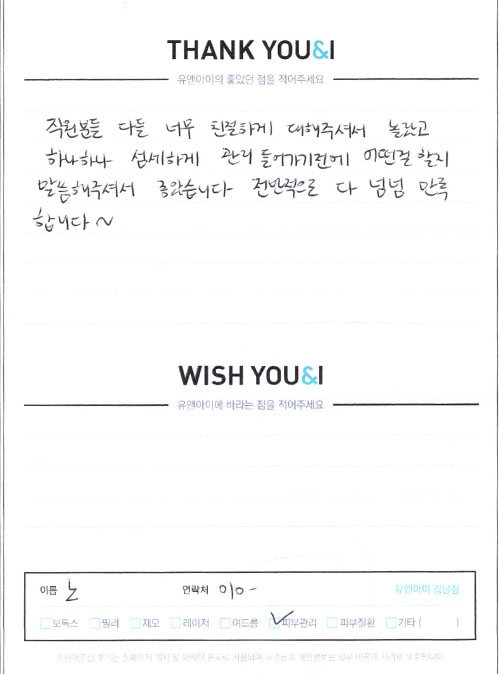 THANK YOU&I
유앤아이의 좋았던 점을 적어주세요
직원분들 다들 너무 친절하게 대해주셔서 놀랐고
하나하나 섬세하게 관리 들어가기전에 어떤걸 할지
말씀해주셔서 좋았습니다 전반적으로 다 넘넘 만족
합니다~
WISH YOU&I
유앤아이에 바라는 점을 적어주세요
이름 노 연락처 010- 유앤아이 강남점
보톡스 필러 제모 레이저 여드름 피부관리 피부질환 기타 ( )